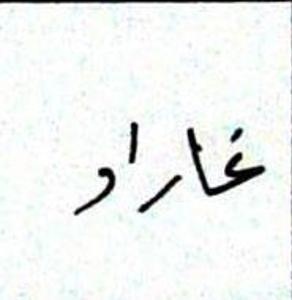 غاراد